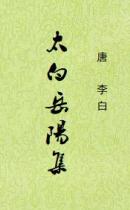 唐 李白
太白岳陽集